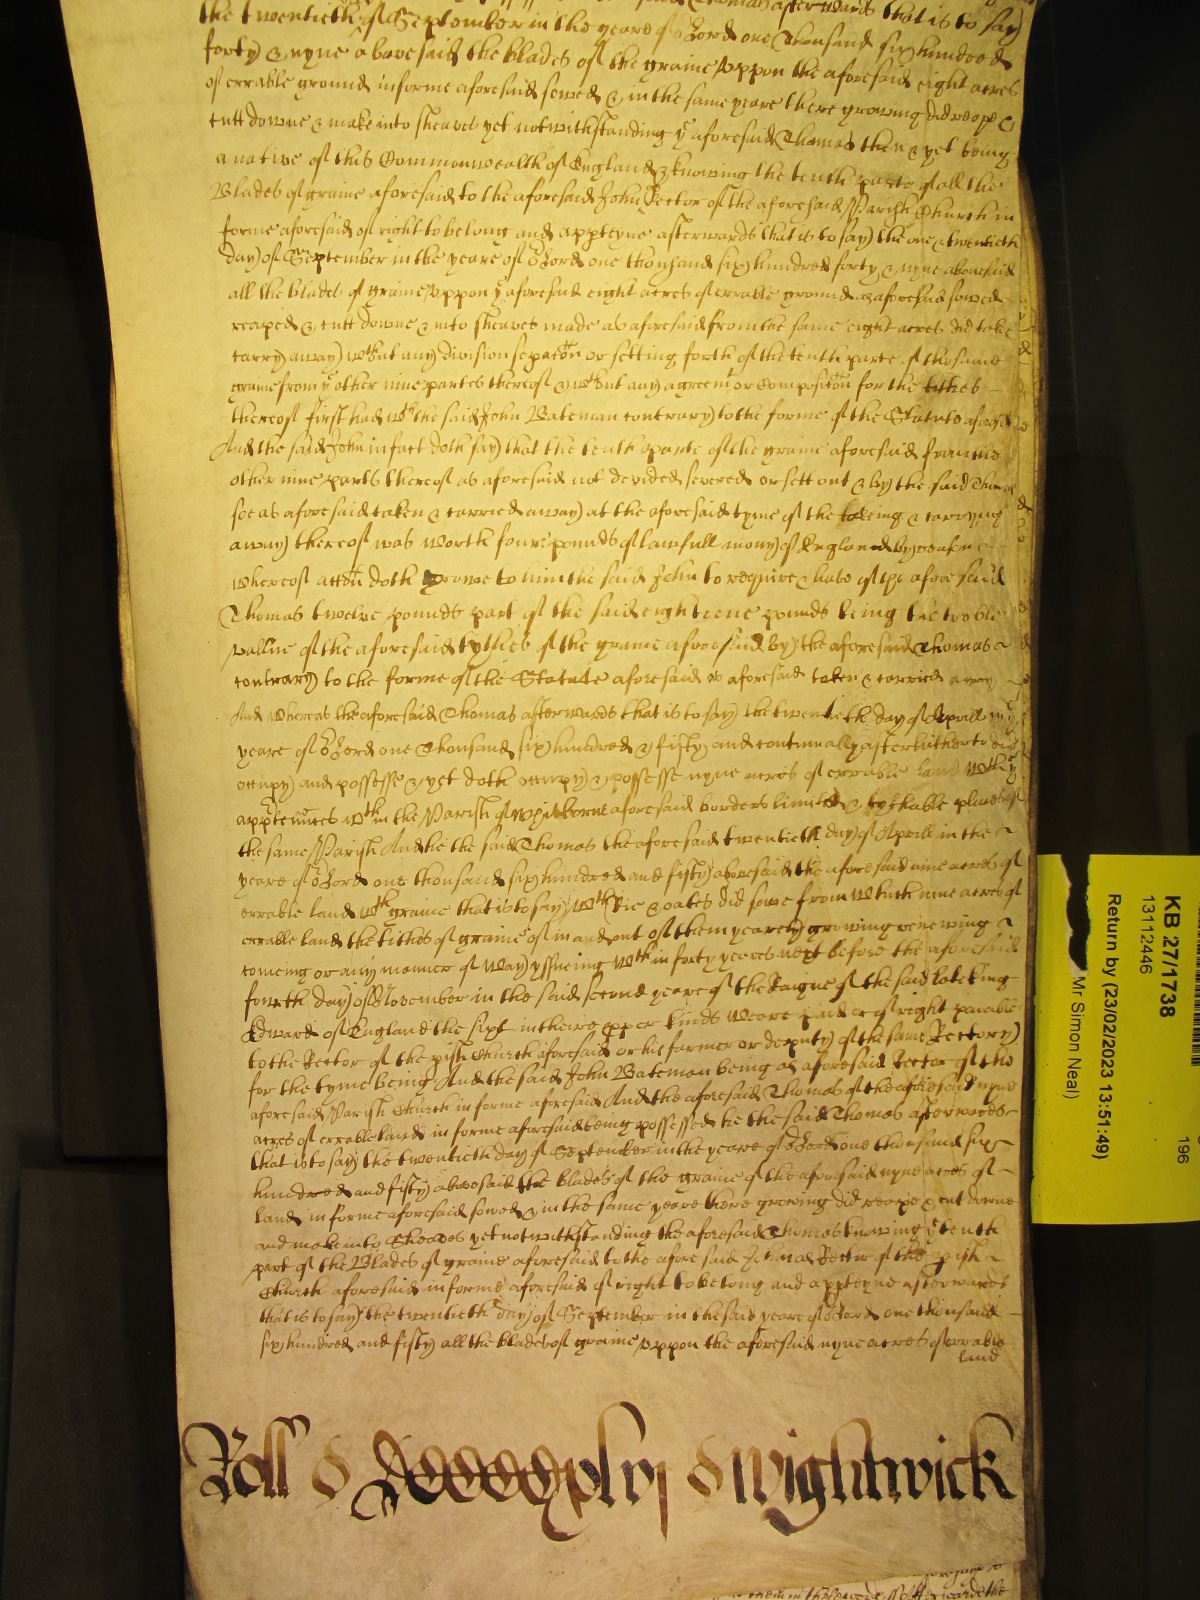 the twentieth of September in the yeare of or Lord one Thousand six hundred
forty & nyne abovesaid the blades of the graine uppon the aforesaid eight acres
of errable ground in forme aforesaid sowed & in the same yeare there growing did reape &
cutt downe & make into sheaves yet notwithstanding ye aforesaid Thomas then & yet being
a native of this Commonwealth of England & knowing the tenth parte of all the
Blades of graine aforesaid to the aforesaid John Rector of the aforesaid Parish Church in
forme aforesaid of right to belong and apperteyne afterwards that is to say the one & twentieth
day of September in the yeare of or Lord one thousand six hundred forty & nyne abovesaid
all the blades of graine uppon ye aforesaid eight acres of errable ground as aforesaid sowed
reaped & cutt downe & into sheaves made as aforesaid from the same eight acres did take
carry away wthout any division separacon or setting forth of the tenth parte of the same
graine from ye other nine partes thereof & wthout any agreemt or Composicon for the tithes
thereof first had wth the said John Bateman contrary to the forme of the Statute aforesd
And the said John in fact doth say that the tenth parte of the graine aforesaid from the
other nine parts thereof as aforesaid not devided severed or sett out & by the said Thomas
soe as aforesaid taken & carried away at the aforesaid tyme of the takeing & carrying
away thereof was worth foure pounds of lawfull mony of England by reason
whereof accon doth growe to him the said John to require & have of the aforesaid
Thomas twelve pounds part of the said eighteene pounds being the treble
vallue of the aforesaid tythes of the graine aforesaid by the aforesaid Thomas
contrary to the forme of the Statute aforesaid as aforesaid taken & carried away
And whereas the aforesaid Thomas afterwards that is to say the twentieth day of Aprill in ye
yeare of or Lord one Thousand six hundred & fifty and continually after hitherto did
occupy and possesse & yet doth occupy & possesse nyne acres of errable land wth ye
apptennces wthin the Parish of aforesaid borders limitts & tythable places of
the same Parish And he the said Thomas the aforesaid twentieth day of Aprill in the
yeare of or Lord one thousand six hundred and fifty abovesaid the aforesaid nine acres of
errable land wth graine that is to say wth Rie & oates did sowe from which nine acres of
errable land the tithes of graine of in and out of them yearely growing renewing
comeing or any manner of way yssueing wthin forty yeares next before the aforesaid
fourth day of November in the said second yeare of the Raigne of the said late king
Edward of England the sixt in their proper kinds weare paid or of right payable
to the Rector of the pish Church aforesaid or his farmer or deputy of the same Rectory
for the tyme being And the said John Bateman being as aforesaid Rector of the
aforesaid Parish Church in forme aforesaid And the aforesaid Thomas of the aforesaid nyne
acres of errable land in forme aforesaid being possessed he the said Thomas afterwardes
that is to say the twentieth day of September in the yeare of or Lord one thousand six
hundred and fifty abovesaid the blades of the graine of the aforesaid nyne acres of
land in forme aforesaid sowed & in the same yeare there growing did reape & cut downe
and make into Sheaves yet notwithstanding the aforesaid Thomas knowing ye tenth
part of the Blades of graine aforesaid to the aforesaid John as Rector of the pish
Church aforesaid in forme aforesaid of right to belong and apperteyne afterwards
that is to say the twentieth day of September in the said yeare of or Lord one thousand
six hundred and fifty all the blades of graine uppon the aforesaid nyne acres of errable
land
Roll & Wightwick
KB 27/1738
13112446
Return by (23/02/2023 13:51:49)
Mr Simon Neal)
196